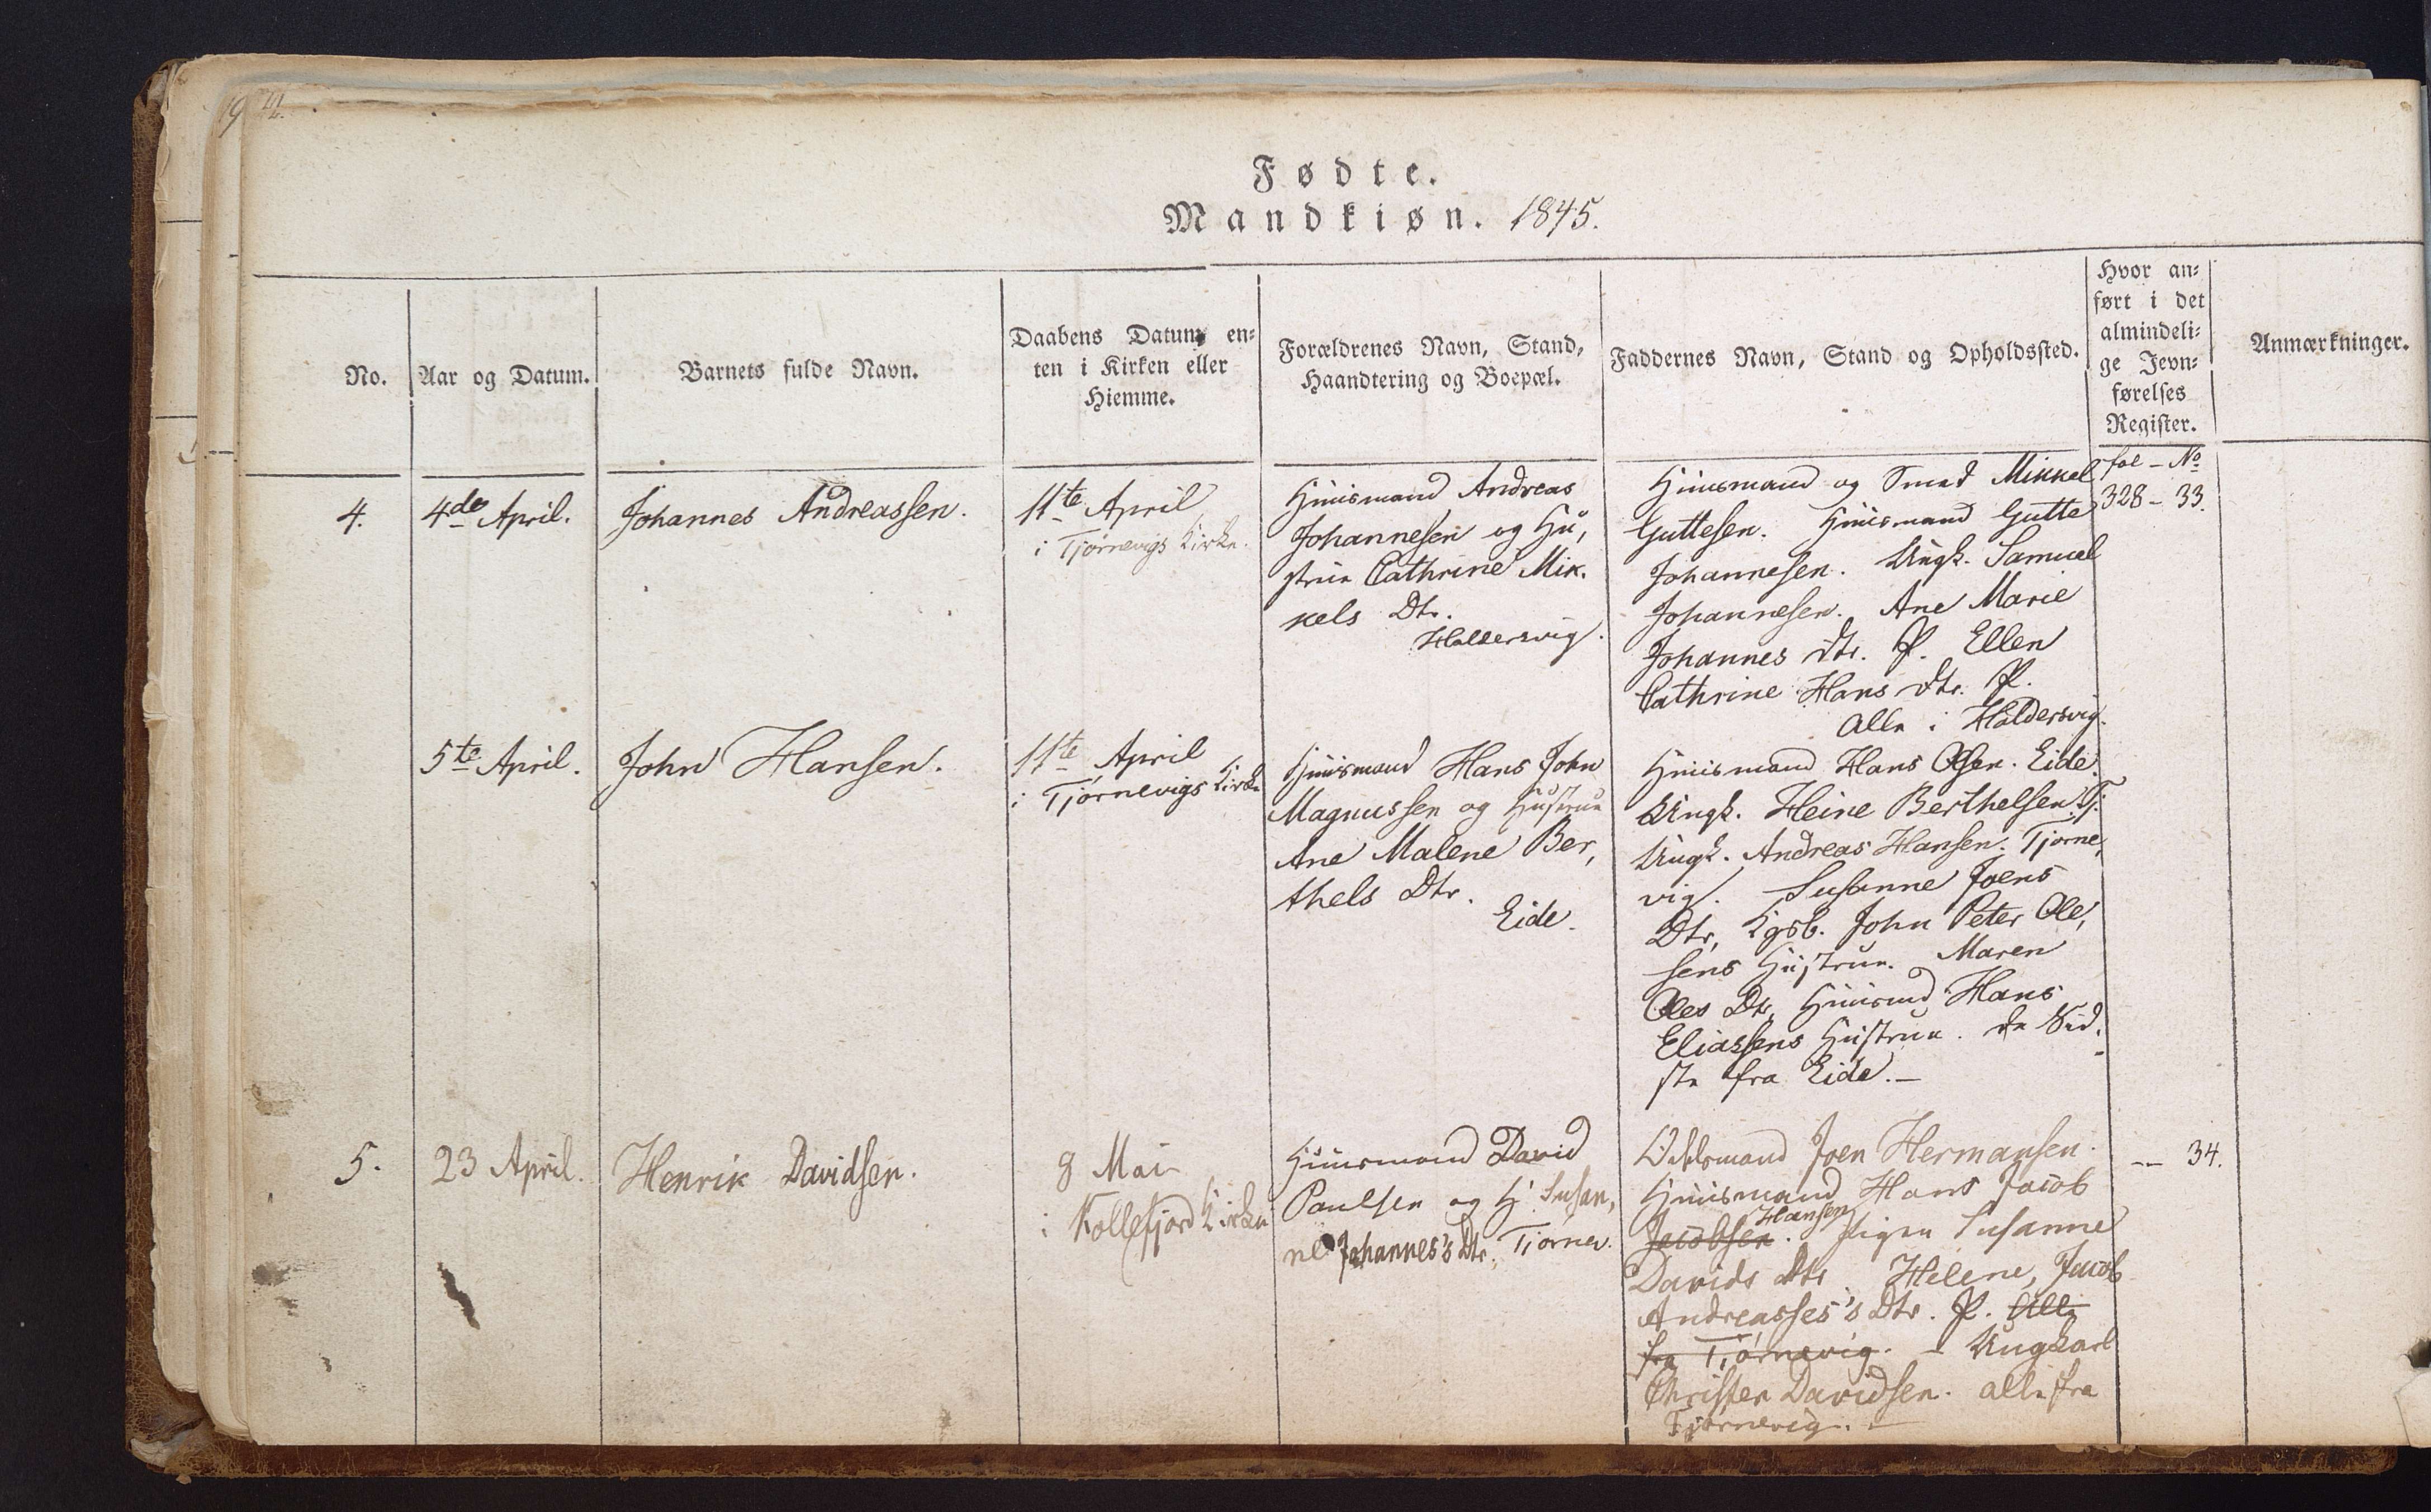 Fødte.
Mandkiøn. 1845.
No.
Aar og Datum.
Barnets fulde Navn.
Daabens Datum en-
ten i Kirken eller
Hiemme.
Forældrenes Navn, Stand,
Haandtering og Boepæl.
Faddernes Navn, Stand og Opholdssted.
Hvor an-
ført i det
almindeli-
ge Jevn-
førelses
Register.
Anmærkninger.
4.
4de April.
Johannes Andreassen.
11te April
i Tjørnevigs Kirke.
Huusmand Andreas
Johannesen og Hu,
strue Cathrine Mik.
kels Dtr.
Haldersvig.
Huusmand og Smed Mikkel
Guttesen. Huusmand Gutte
Johannesen. Ungk. Samuel
Johannesen. Ane Marie
Johannes Dtr. P. Ellen
Cathrine Hans Dtr. P.
alle i Haldersvig.
fol - No
328 - 33.
5te April.
John Hansen.
11te April
i Tjørnevigs Kirke
Huusmand Hans John
Magnussen og Hustrue
Ane Malene Ber,
thels Dtr.
Eide.
Huusmand Hans Olsen. Eide.
Ungk. Heine Berthelsen. Tj.
Ungk. Andreas Hansen. Tjørne,
vig. Susanne Joens
Dtr, Kgsb. John Peter Ole,
sens Hustrue. Maren
Oles Dtr, Huusmd Hans
Eliassens Hustrue. de Sid.
ste fra Eide.-
5.
23 April.
Henrik Davidsen.
8 Mai
i Kollefjord Kirke
Huusmand David
Paulsen og H. Susan,
ne Johannes's Dtr. Tjørnev.
Odelsmand Joen Hermansen.
Huusmand Hans Jacob
Hansen
Jacobsen. Pigen Susanne
Davids Dtr. Helene, Jacob
Andreasses's Dtr. P. Alle
fra Tjørnevig. - Ungkarl
Christen Davidsen. alle fra
Tjørnevig. -
-- 34.